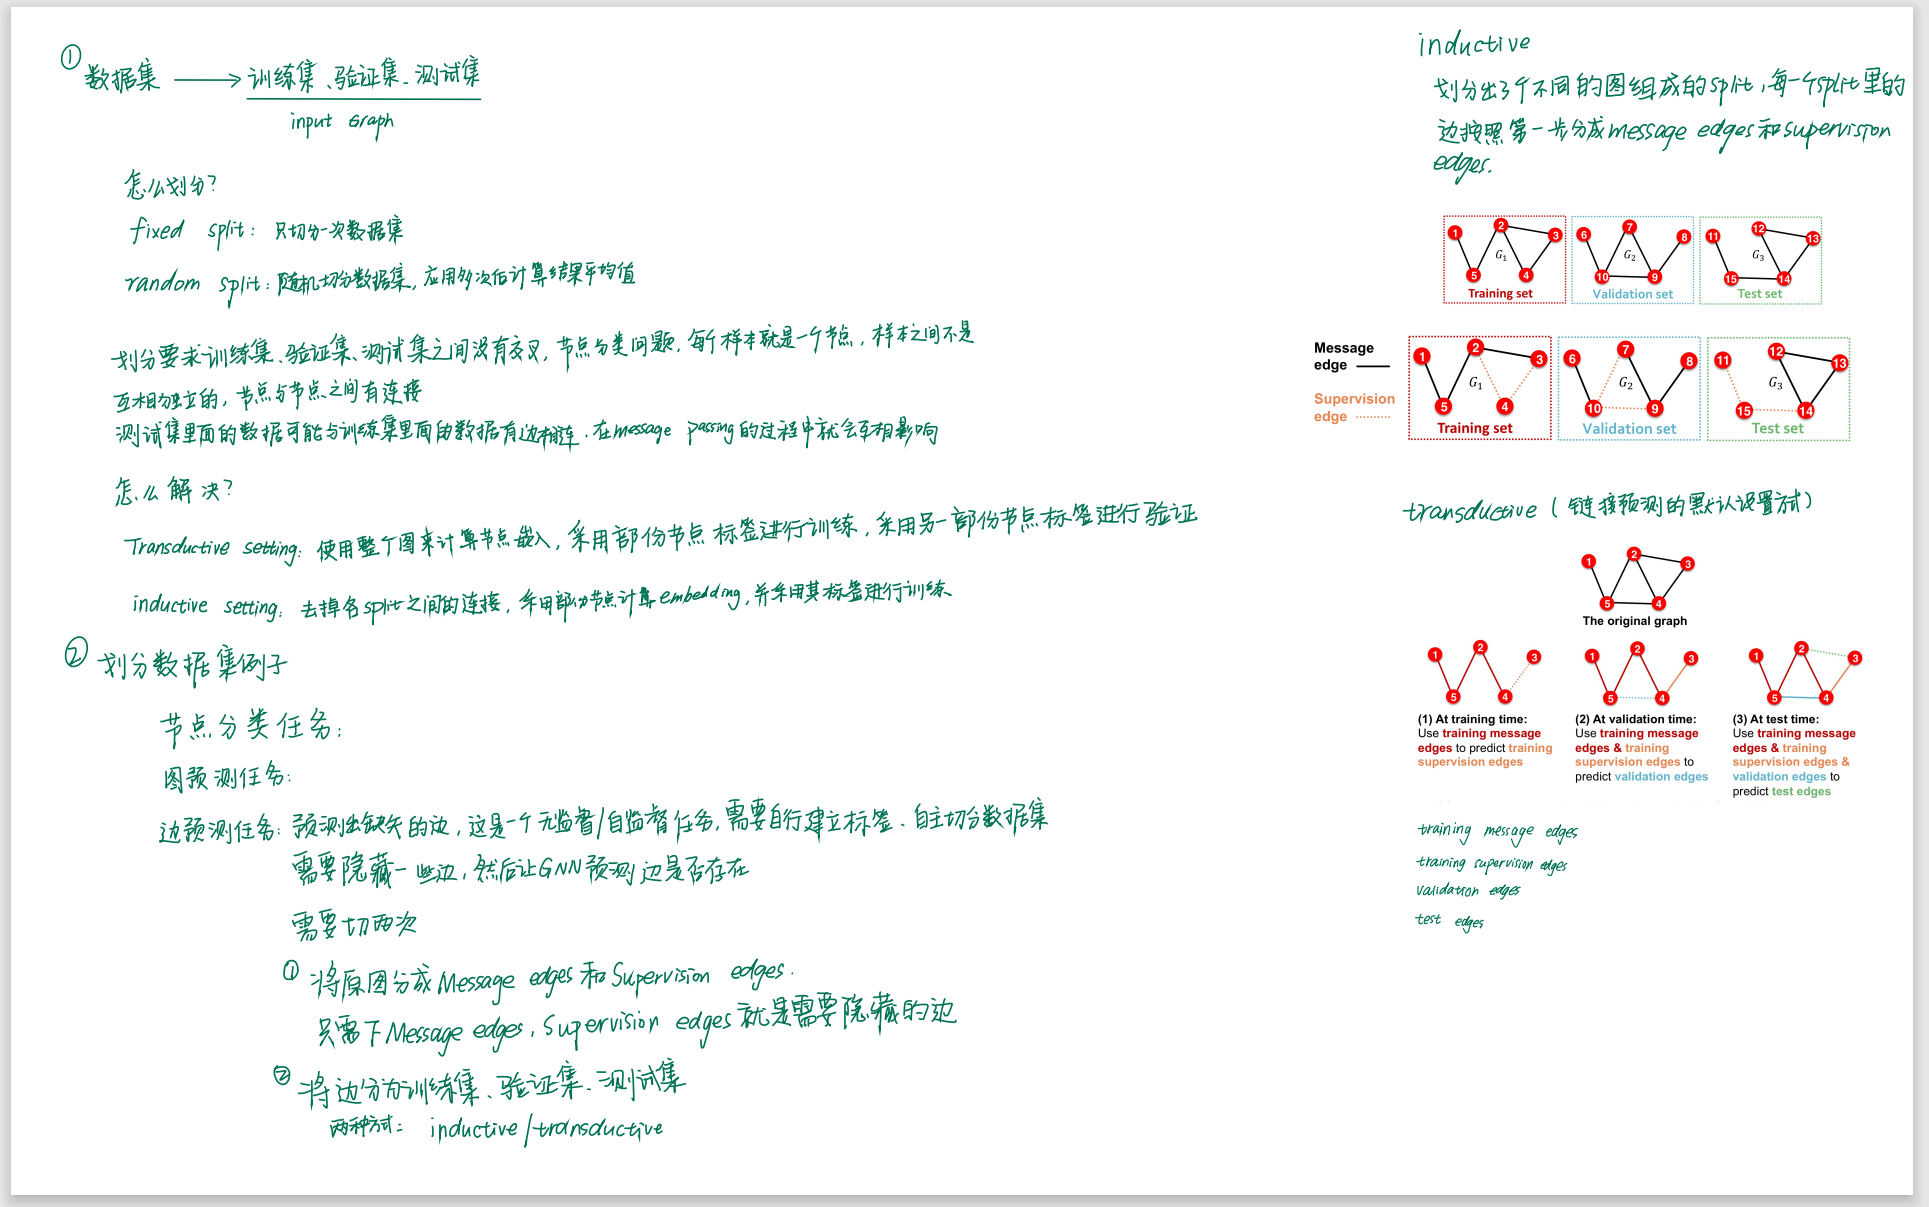 ①
数据集 → 训练集、验证集、测试集
input Graph
怎么划分?
fixed split: 只切分一次数据集
random split: 随机切分数据集, 应用多次后计算结果平均值
划分要求训练集、验证集、测试集之间没有交叉, 节点分类问题, 每个样本就是一个节点, 样本之间不是
互相独立的, 节点与节点之间有连接
测试集里面的数据可能与训练集里面的数据有边相连. 在message passing的过程中就会互相影响
怎么解决?
Transductive setting: 使用整个图来计算节点嵌入, 采用部份节点标签进行训练, 采用另一部份节点标签进行验证
inductive setting: 去掉各split之间的连接, 采用部份节点计算embedding, 并采用其标签进行训练
② 划分数据集例子
节点分类任务:
图预测任务:
边预测任务: 预测出缺失的边, 这是一个无监督/自监督任务, 需要自行建立标签、自主切分数据集
需要隐藏一些边, 然后让GNN预测边是否存在
需要切两次
① 将原图分成Message edges和Supervision edges.
只需下Message edges, Supervision edges就是需要隐藏的边
② 将边分为训练集、验证集、测试集
两种方式: inductive/transductive
inductive
划分出3个不同的图组成的split, 每一个split里的
边按照第一步分成message edges和supervision
edges.
1 2 3 5 4 G1
Training set
6 7 8 10 9 G2
Validation set
11 12 13 15 14 G3
Test set
Message
edge
Supervision
edge
1 2 3 5 4 G1
Training set
6 7 8 10 9 G2
Validation set
11 12 13 15 14 G3
Test set
transductive (链接预测的默认设置方式)
1 2 3 5 4
The original graph
1 2 3 5 4
(1) At training time:
Use training message
edges to predict training
supervision edges
1 2 3 5 4
(2) At validation time:
Use training message
edges & training
supervision edges to
predict validation edges
1 2 3 5 4
(3) At test time:
Use training message
edges & training
supervision edges &
validation edges to
predict test edges
training message edges
training supervision edges
validation edges
test edges